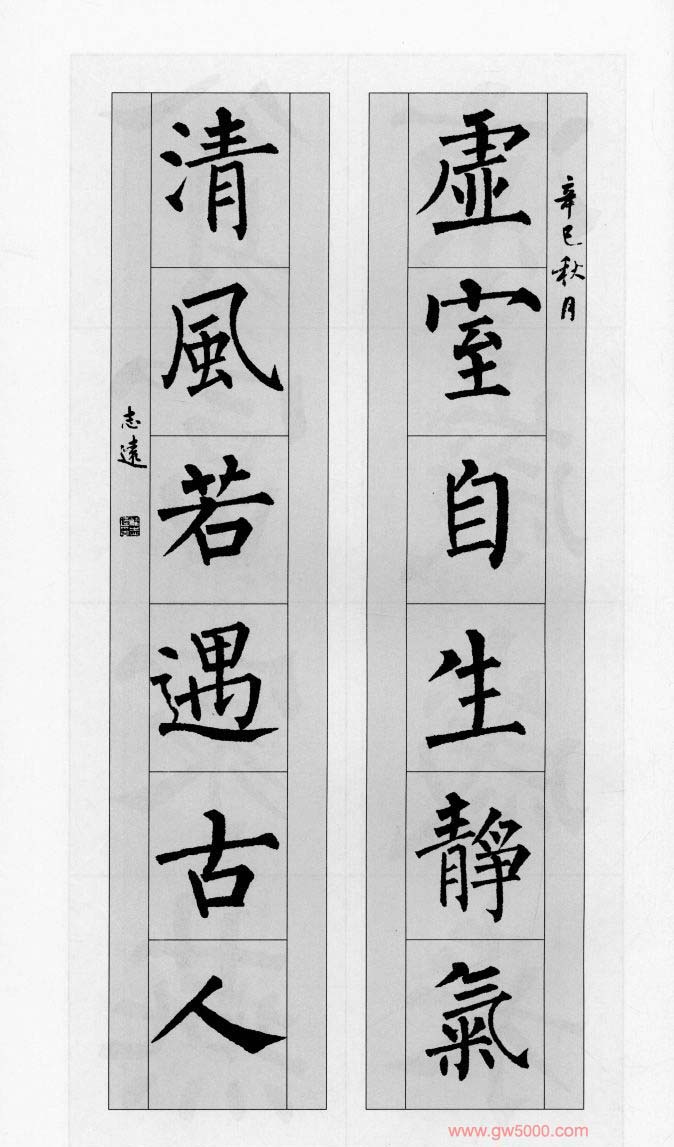 辛巳秋月
虛室自生靜氣
清風若遇古人
志遠
www.gw5000.com